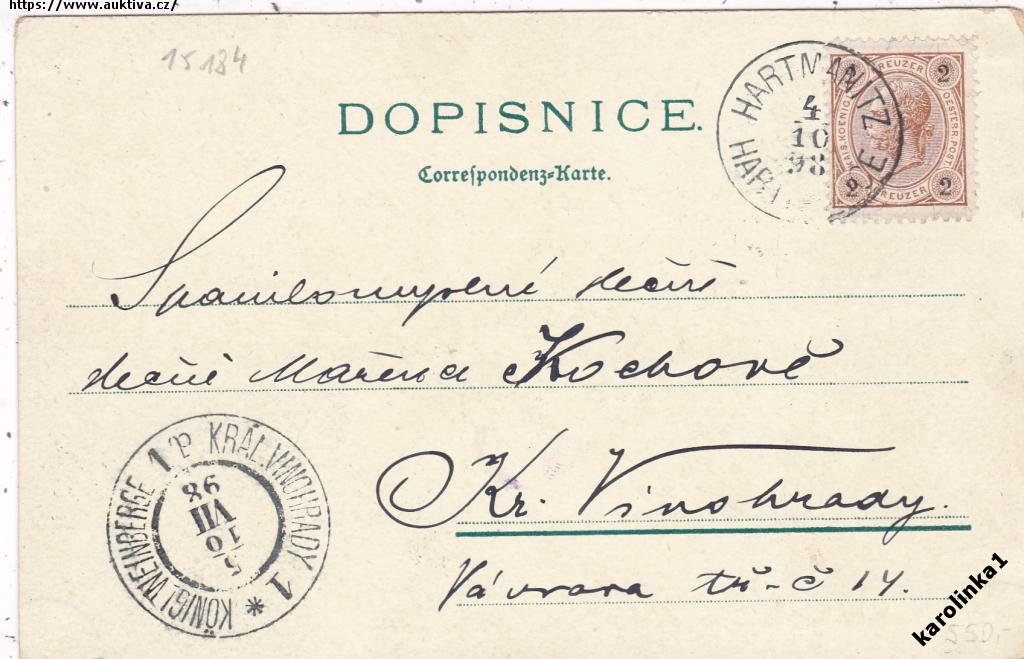 https://www.auktiva.cz/
15184
DOPISNICE.
Correspondenz-Karte.
HARTMANITZ
4
10
98
HAR
KAIS. KOENIG. OESTERR. POST.
KREUZER
2 2
2 2
KREUZER
Spanilomyslné slečně
slečně Mařence Kochově
Kr. Vinohrady.
Vávrova tř. č 14.
KÖNIGL. WEINBERGE 1 KRÁL. VINOHRADY 1 *
5
10
VII
98
550,-
karolinka1